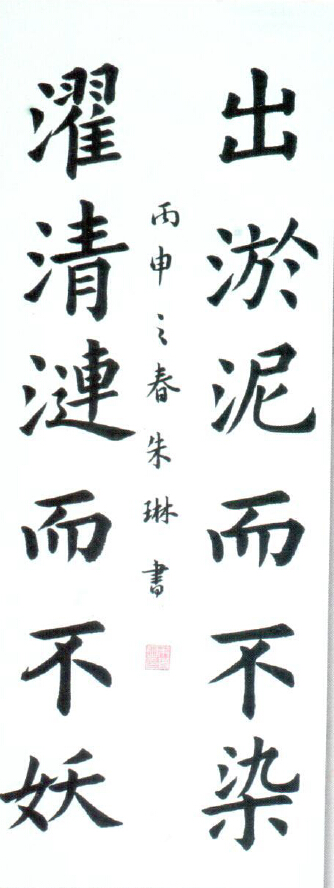 出淤泥而不染
濯清漣而不妖
丙申之春朱琳書